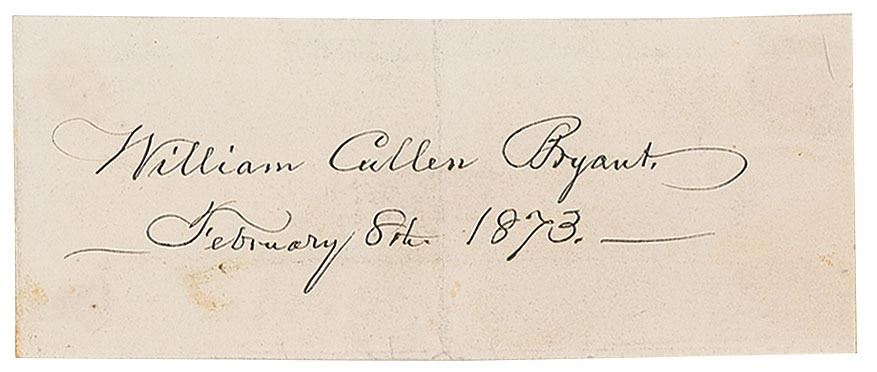 William Cullen Bryant.
February 8th. 1873.